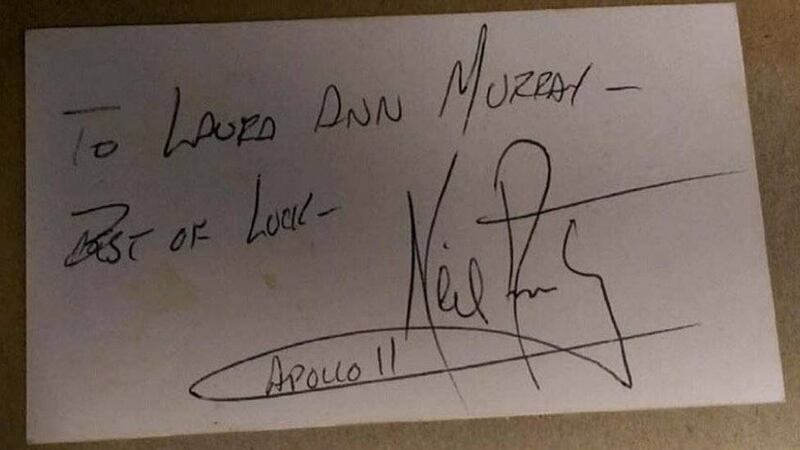 To Laura Ann Murray –
Best of Luck –
Neil
Apollo 11